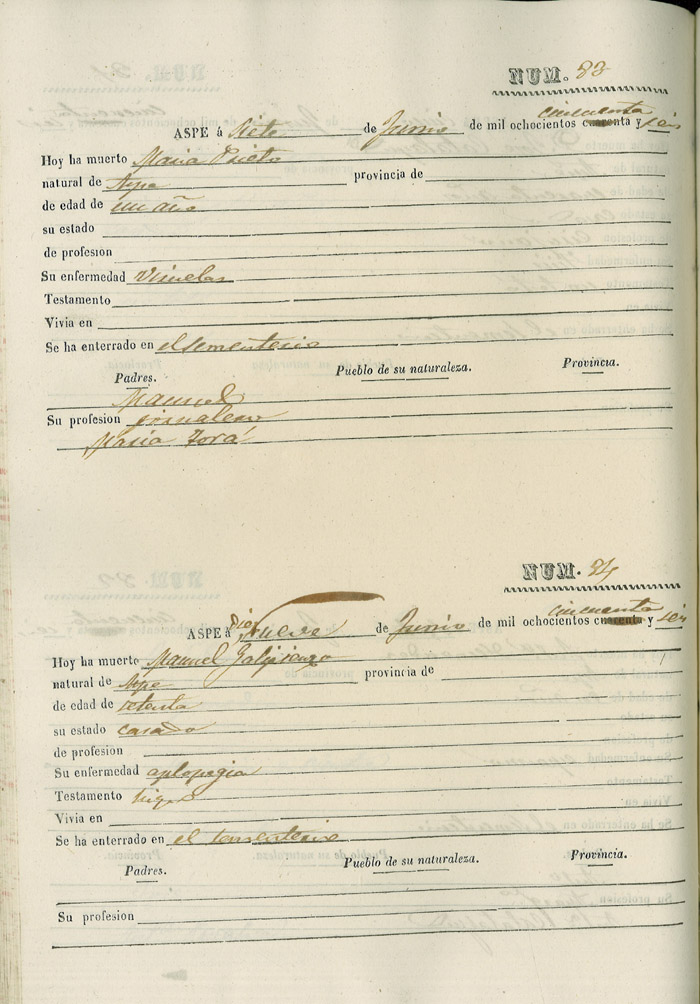 NUM. 83
cincuenta
ASPE á Siete de Junio de mil ochocientos cuarenta y seis
Hoy ha muerto Maria Prieto
natural de Aspe provincia de
de edad de un año
su estado
de profesion
Su enfermedad Viruelas
Testamento
Vivia en
Se ha enterrado en el sementerio
Padres. Pueblo de su naturaleza. Provincia.
Manuel
Su profesion jornalero
Maria Torá
NUM. 84
cincuenta
ASPE á Diez Nueve de Junio de mil ochocientos cuarenta y seis
Hoy ha muerto Manuel
natural de Aspe provincia de
de edad de setenta
su estado casado
de profesion
Su enfermedad aplopegia
Testamento
Vivia en
Se ha enterrado en el sementerio
Padres. Pueblo de su naturaleza. Provincia.
Su profesion